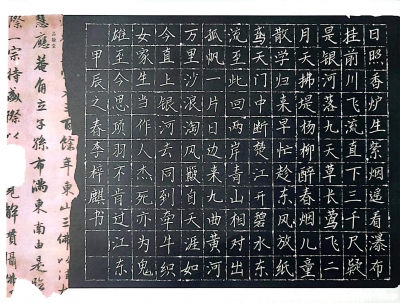 日照香炉生紫烟遥看瀑布
挂前川飞流直下三千尺疑
是银河落九天草长莺飞二
月天拂堤杨柳醉春烟儿童
散学归来早忙趁东风放纸
鸢天门中断楚江开碧水东
流至此回两岸青山相对出
孤帆一片日边来九曲黄河
万里沙浪淘风簸自天涯如
今直上银河去同到牵牛织
女家生当作人杰死亦为鬼
雄至今思项羽不肯过江东
甲辰之春李梓麒书
百餘年東山三佛以法
子孫市滿東南由是